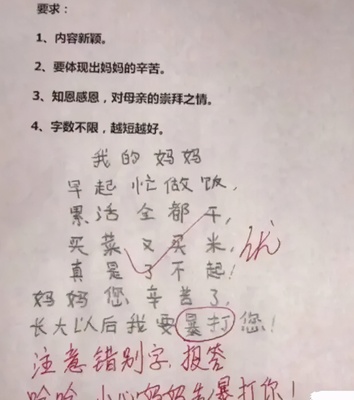 要求：
1、内容新颖。
2、要体现出妈妈的辛苦。
3、知恩感恩，对母亲的崇拜之情。
4、字数不限，越短越好。
我的妈妈
早起忙做饭，
累活全都干，
买菜又买米，
真是了不起！
妈妈您辛苦了，
长大以后我要暴打您！
优
注意错别字，报答
哈哈，小心妈妈先暴打你！